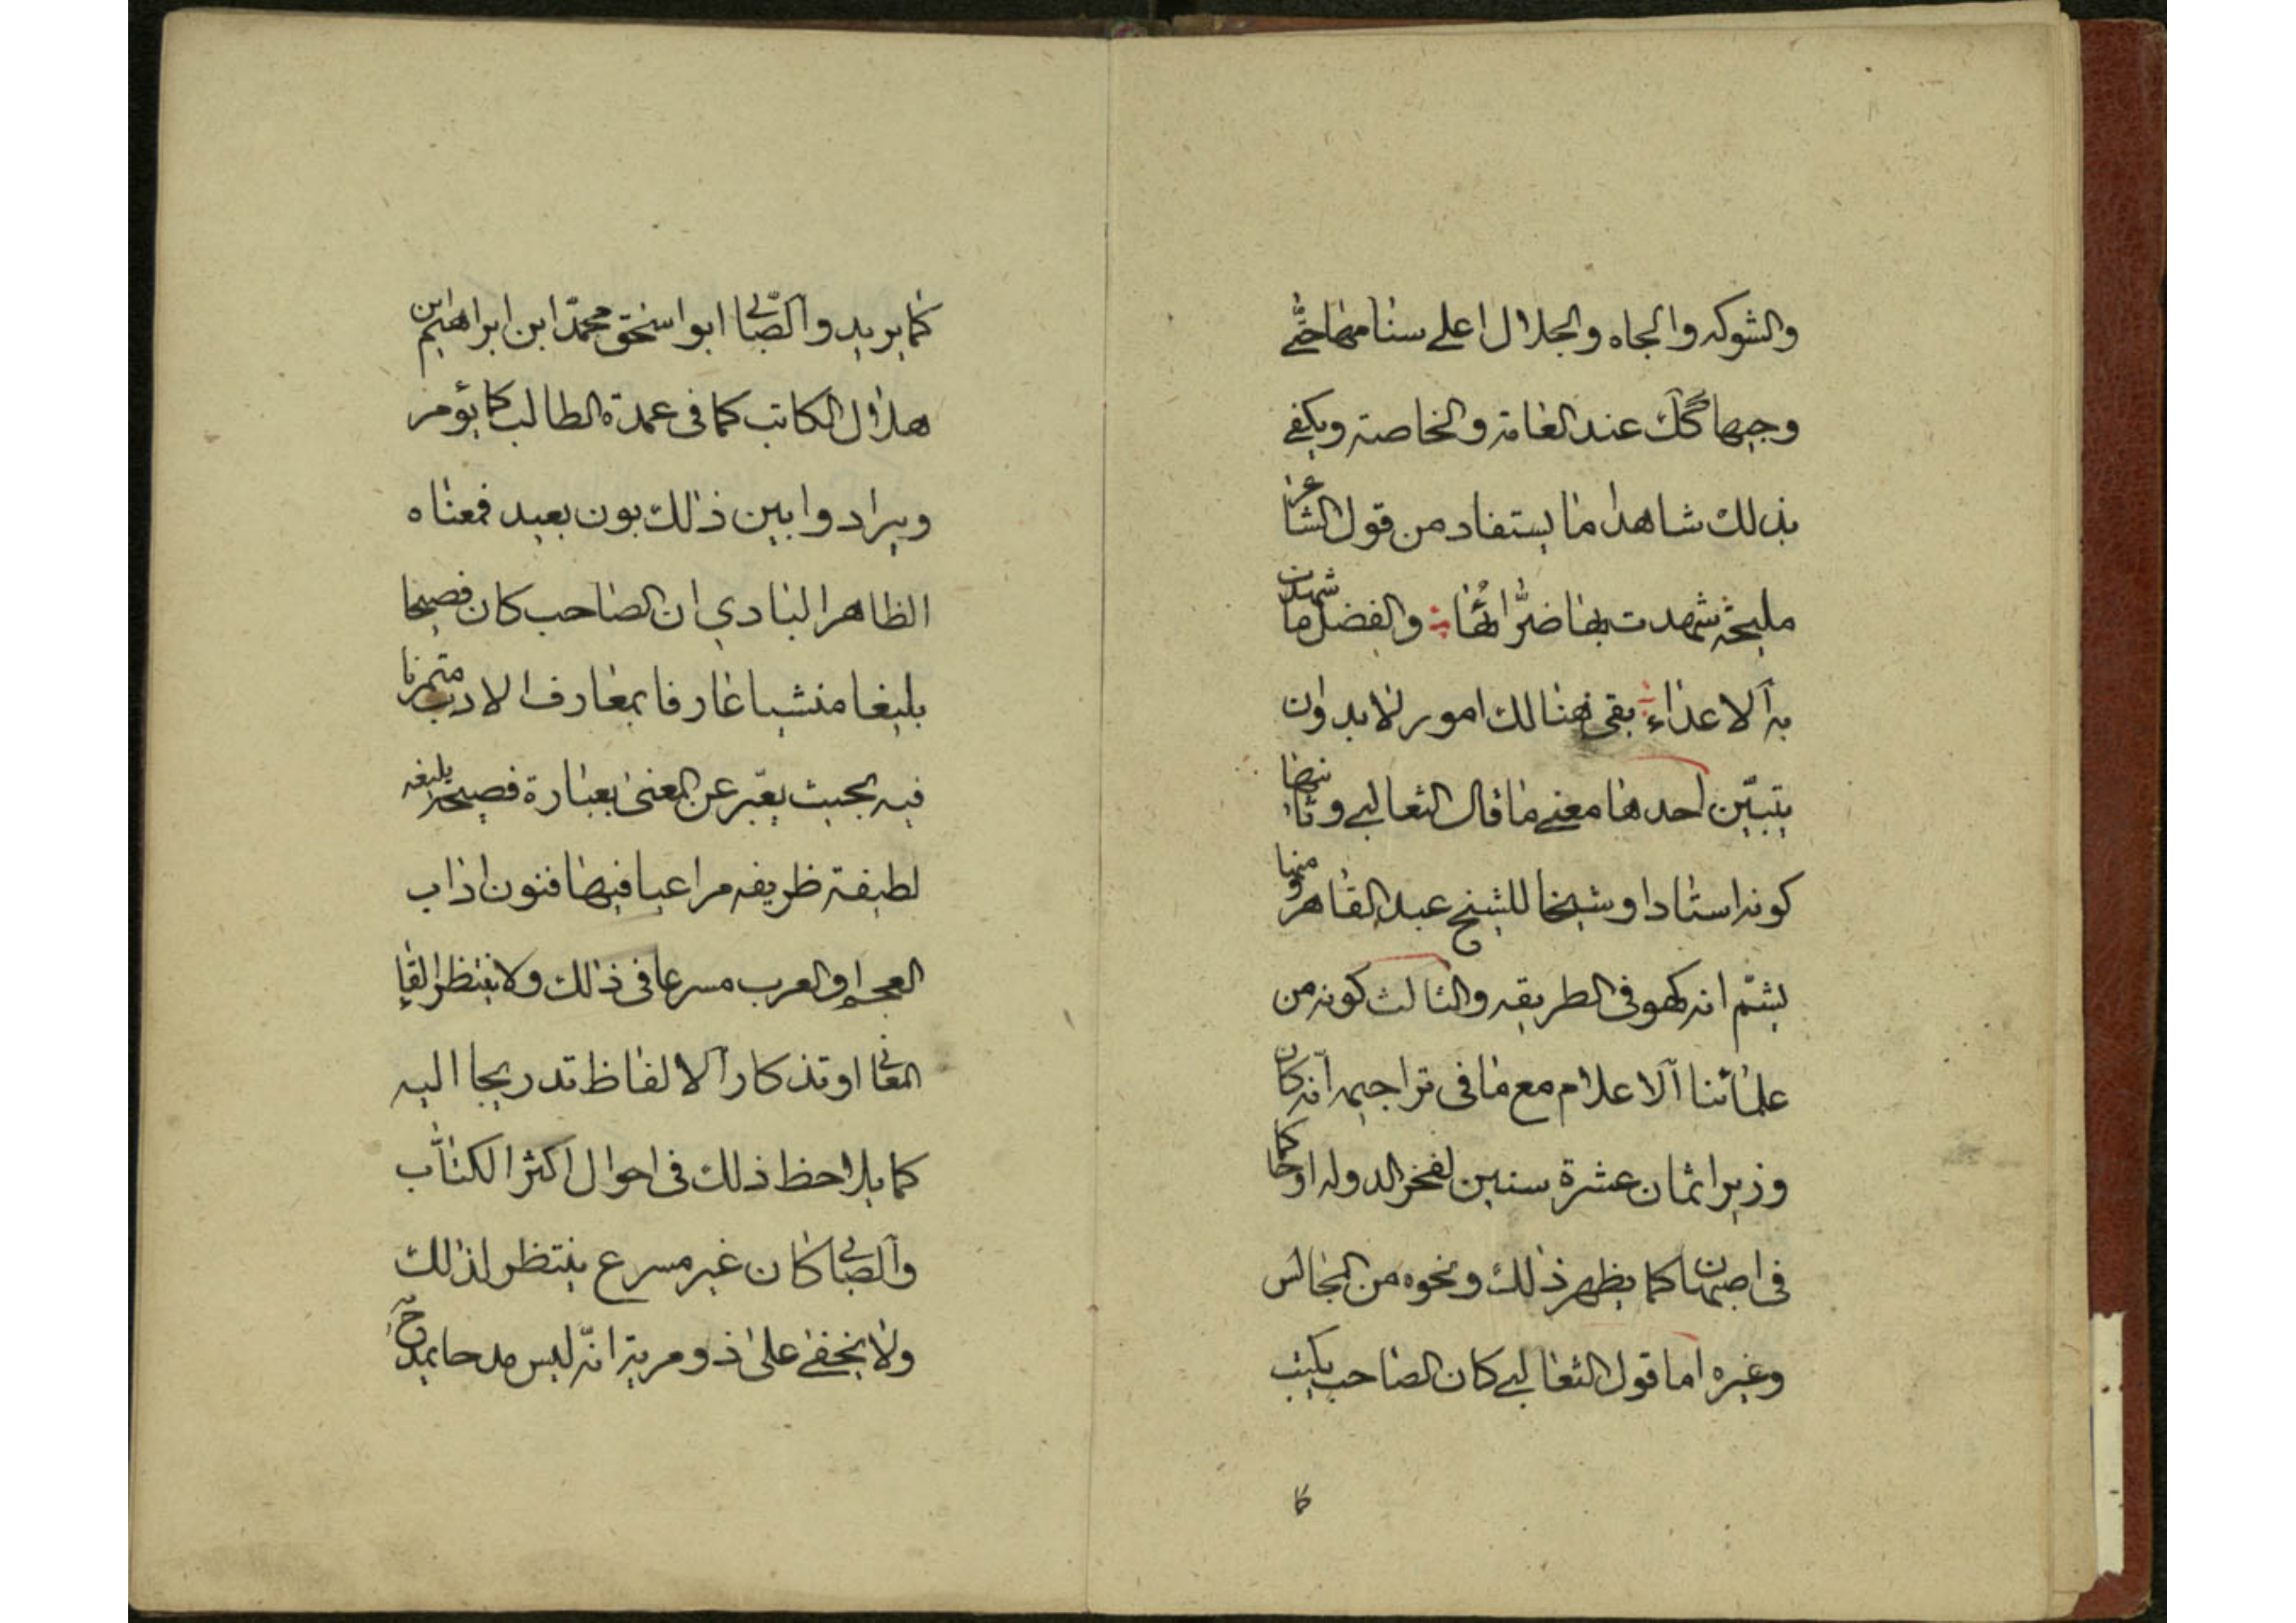 والشوكه والجاه والجلال اعلى سنامها حتى
وجيها كك عند العامة والخاصة ويكفى
بذلك شاهدا ما يستفاد من قول الشاعر
مليحة شهدت بها ضراتها والفضل ما شهدت
به الاعداء بقى هنالك امور لا بد وان
يتبين احدها معنى ما قال الثعالبى وثانيها
كونه استادا وشيخا للشيخ عبد القاهر ومنها
يشم انه كهو فى الطريقه والثالث كونه من
علمائنا الاعلام مع ما فى تراجيمه انه كان
وزيرا ثمان عشرة سنين لفخر الدوله او حاكما
فى اصبهان كما يظهر ذلك ونحوه من المجالس
وغيره اما قول الثعالبى كان الصاحب يكتب
كا
كما يريد والصابى ابو اسحق محمد ابن ابراهيم ابن
هلال الكاتب كما فى عمدة الطالب كما يؤمر
ويراد وابين ذلك بون بعيد فمعناه
الظاهر البادي ان الصاحب كان فصيحا
بليغا منشيا عارفا بمعارف الادب متمرنا
فيه بحيث يعبّر عن المعنى بعبارة فصيحة بليغه
لطيفة ظريفه مراعيا فيها فنون اداب
العجم والعرب مسرعا فى ذلك ولا ينتظر القاء
المعانى او تذكار الالفاظ تدريجا اليه
كما يلاحظ ذلك فى احوال اكثر الكتّاب
والصابى كان غير مسرع ينتظر لذلك
ولا يخفى على ذو مرية انّه ليس مدحا يمدح